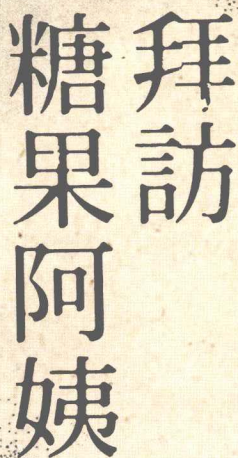 拜訪
糖果阿姨